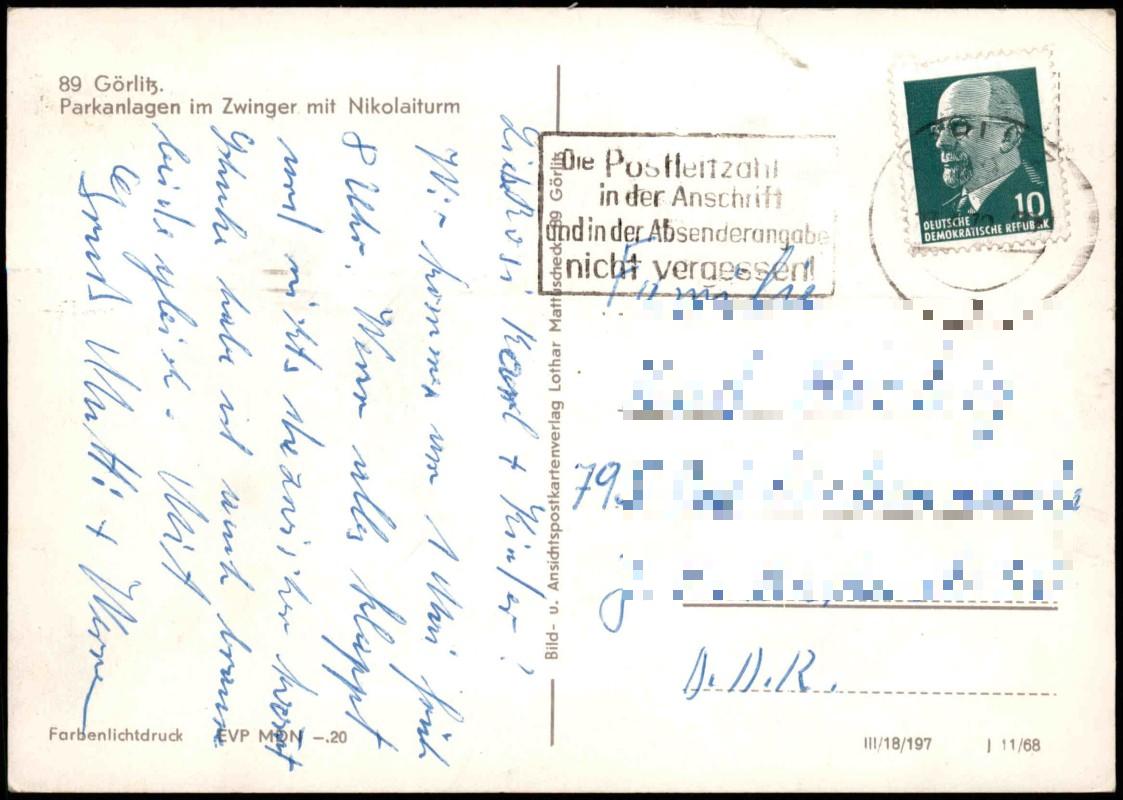 89 Görlitz.
Parkanlagen im Zwinger mit Nikolaiturm
Liebe Rosi Karl + Kinder!
Wir kommen um 1 Mai früh
8 Uhr. Wenn alles klappt
und nichts dazwischen kommt
Schuhe habe ich auch braune
beide gleich. Mit
Gruß Mutti + Werner
Farbenlichtdruck EVP MDN –.20
Bild- u. Ansichtspostkartenverlag Lothar Mattuscheck 89 Görlitz
Die Postleitzahl
in der Anschrift
und in der Absenderangabe
nicht vergessen!
10
DEUTSCHE
DEMOKRATISCHE REPUBLIK
Familie
795
D.D.R.
III/18/197 J 11/68